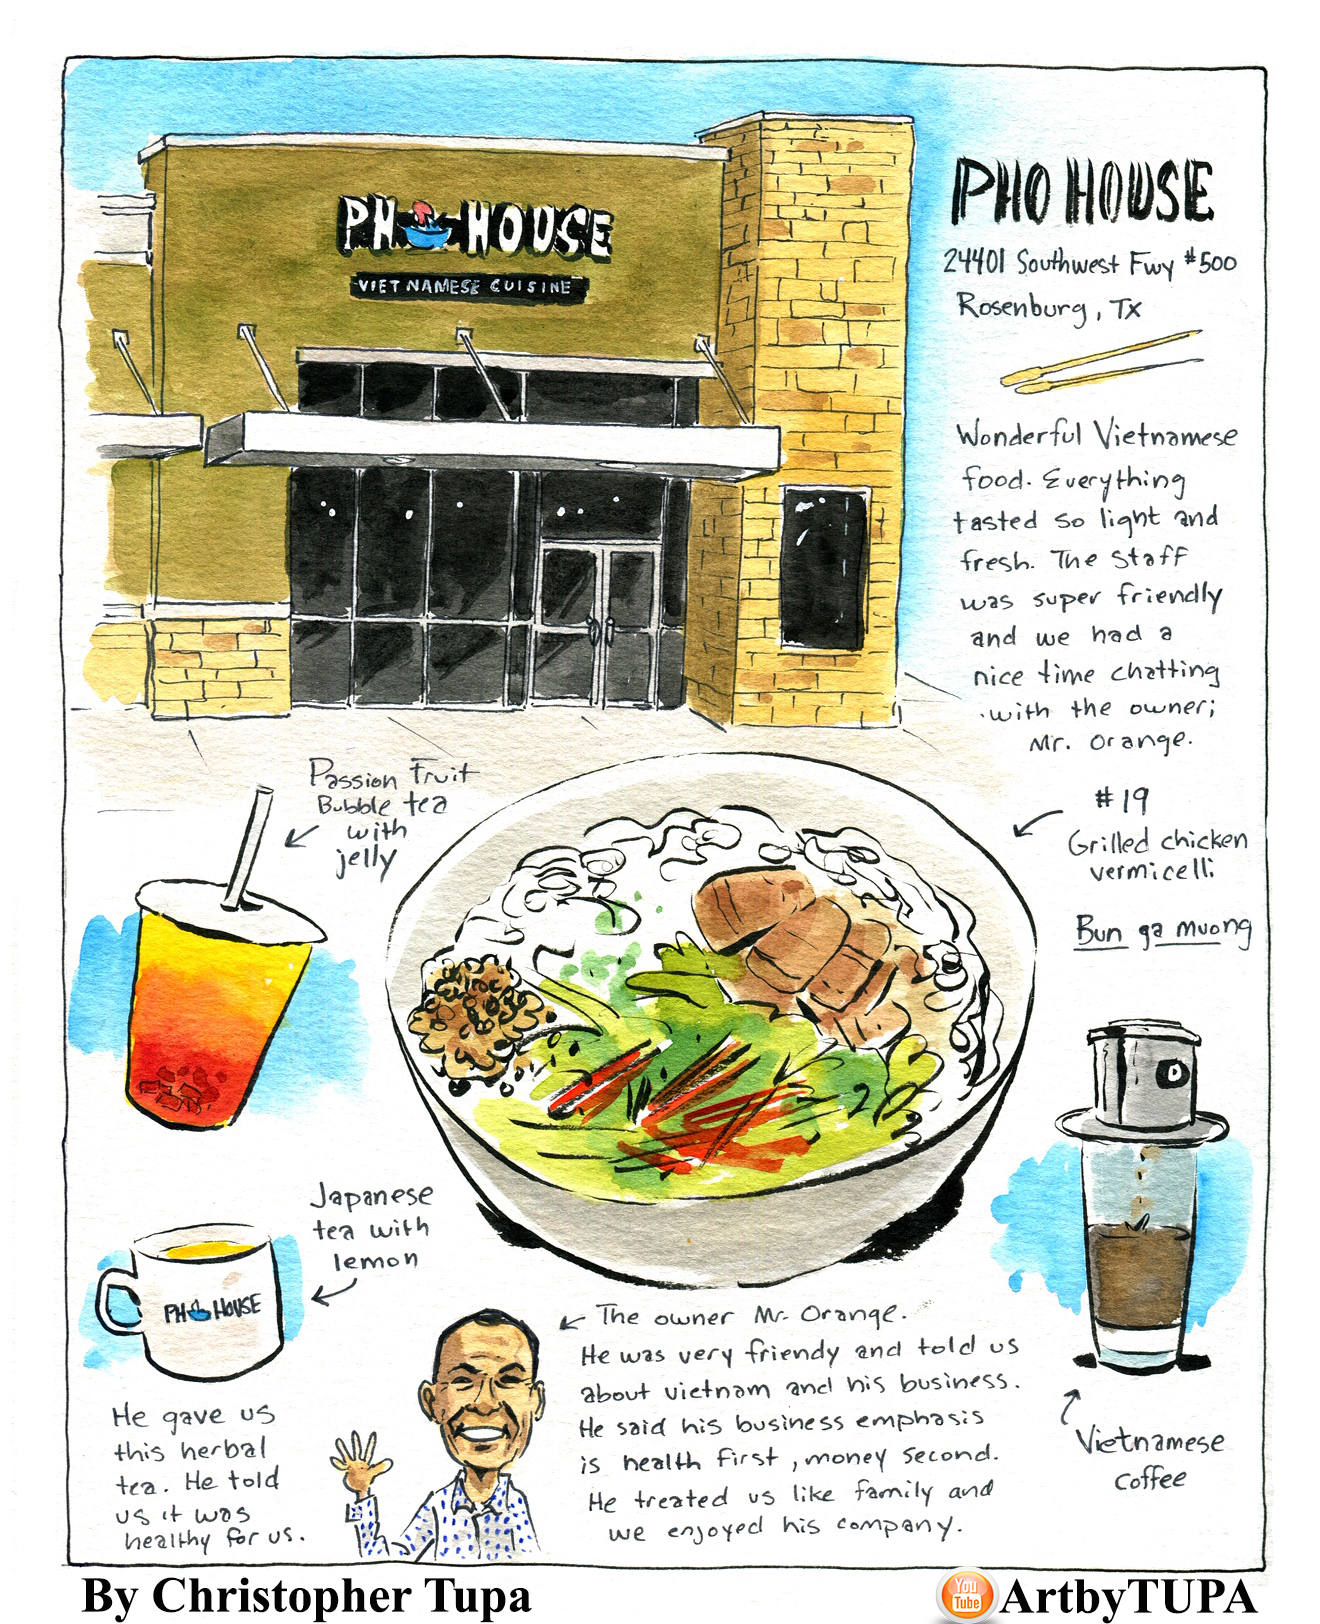 PHO HOUSE
VIETNAMESE CUISINE
PHO HOUSE
24401 Southwest Fwy #500
Rosenburg, Tx
Wonderful Vietnamese
food. Everything
tasted so light and
fresh. The staff
was super friendly
and we had a
nice time chatting
with the owner;
Mr. Orange.
Passion Fruit
Bubble tea
with
jelly
#19
Grilled chicken
vermicelli
Bun ga muong
Japanese
tea with
lemon
PHO HOUSE
He gave us
this herbal
tea. He told
us it was
healthy for us.
The owner Mr. Orange.
He was very friendy and told us
about vietnam and his business.
He said his business emphasis
is health first, money second.
He treated us like family and
we enjoyed his company.
Vietnamese
coffee
By Christopher Tupa
You
Tube
ArtbyTUPA